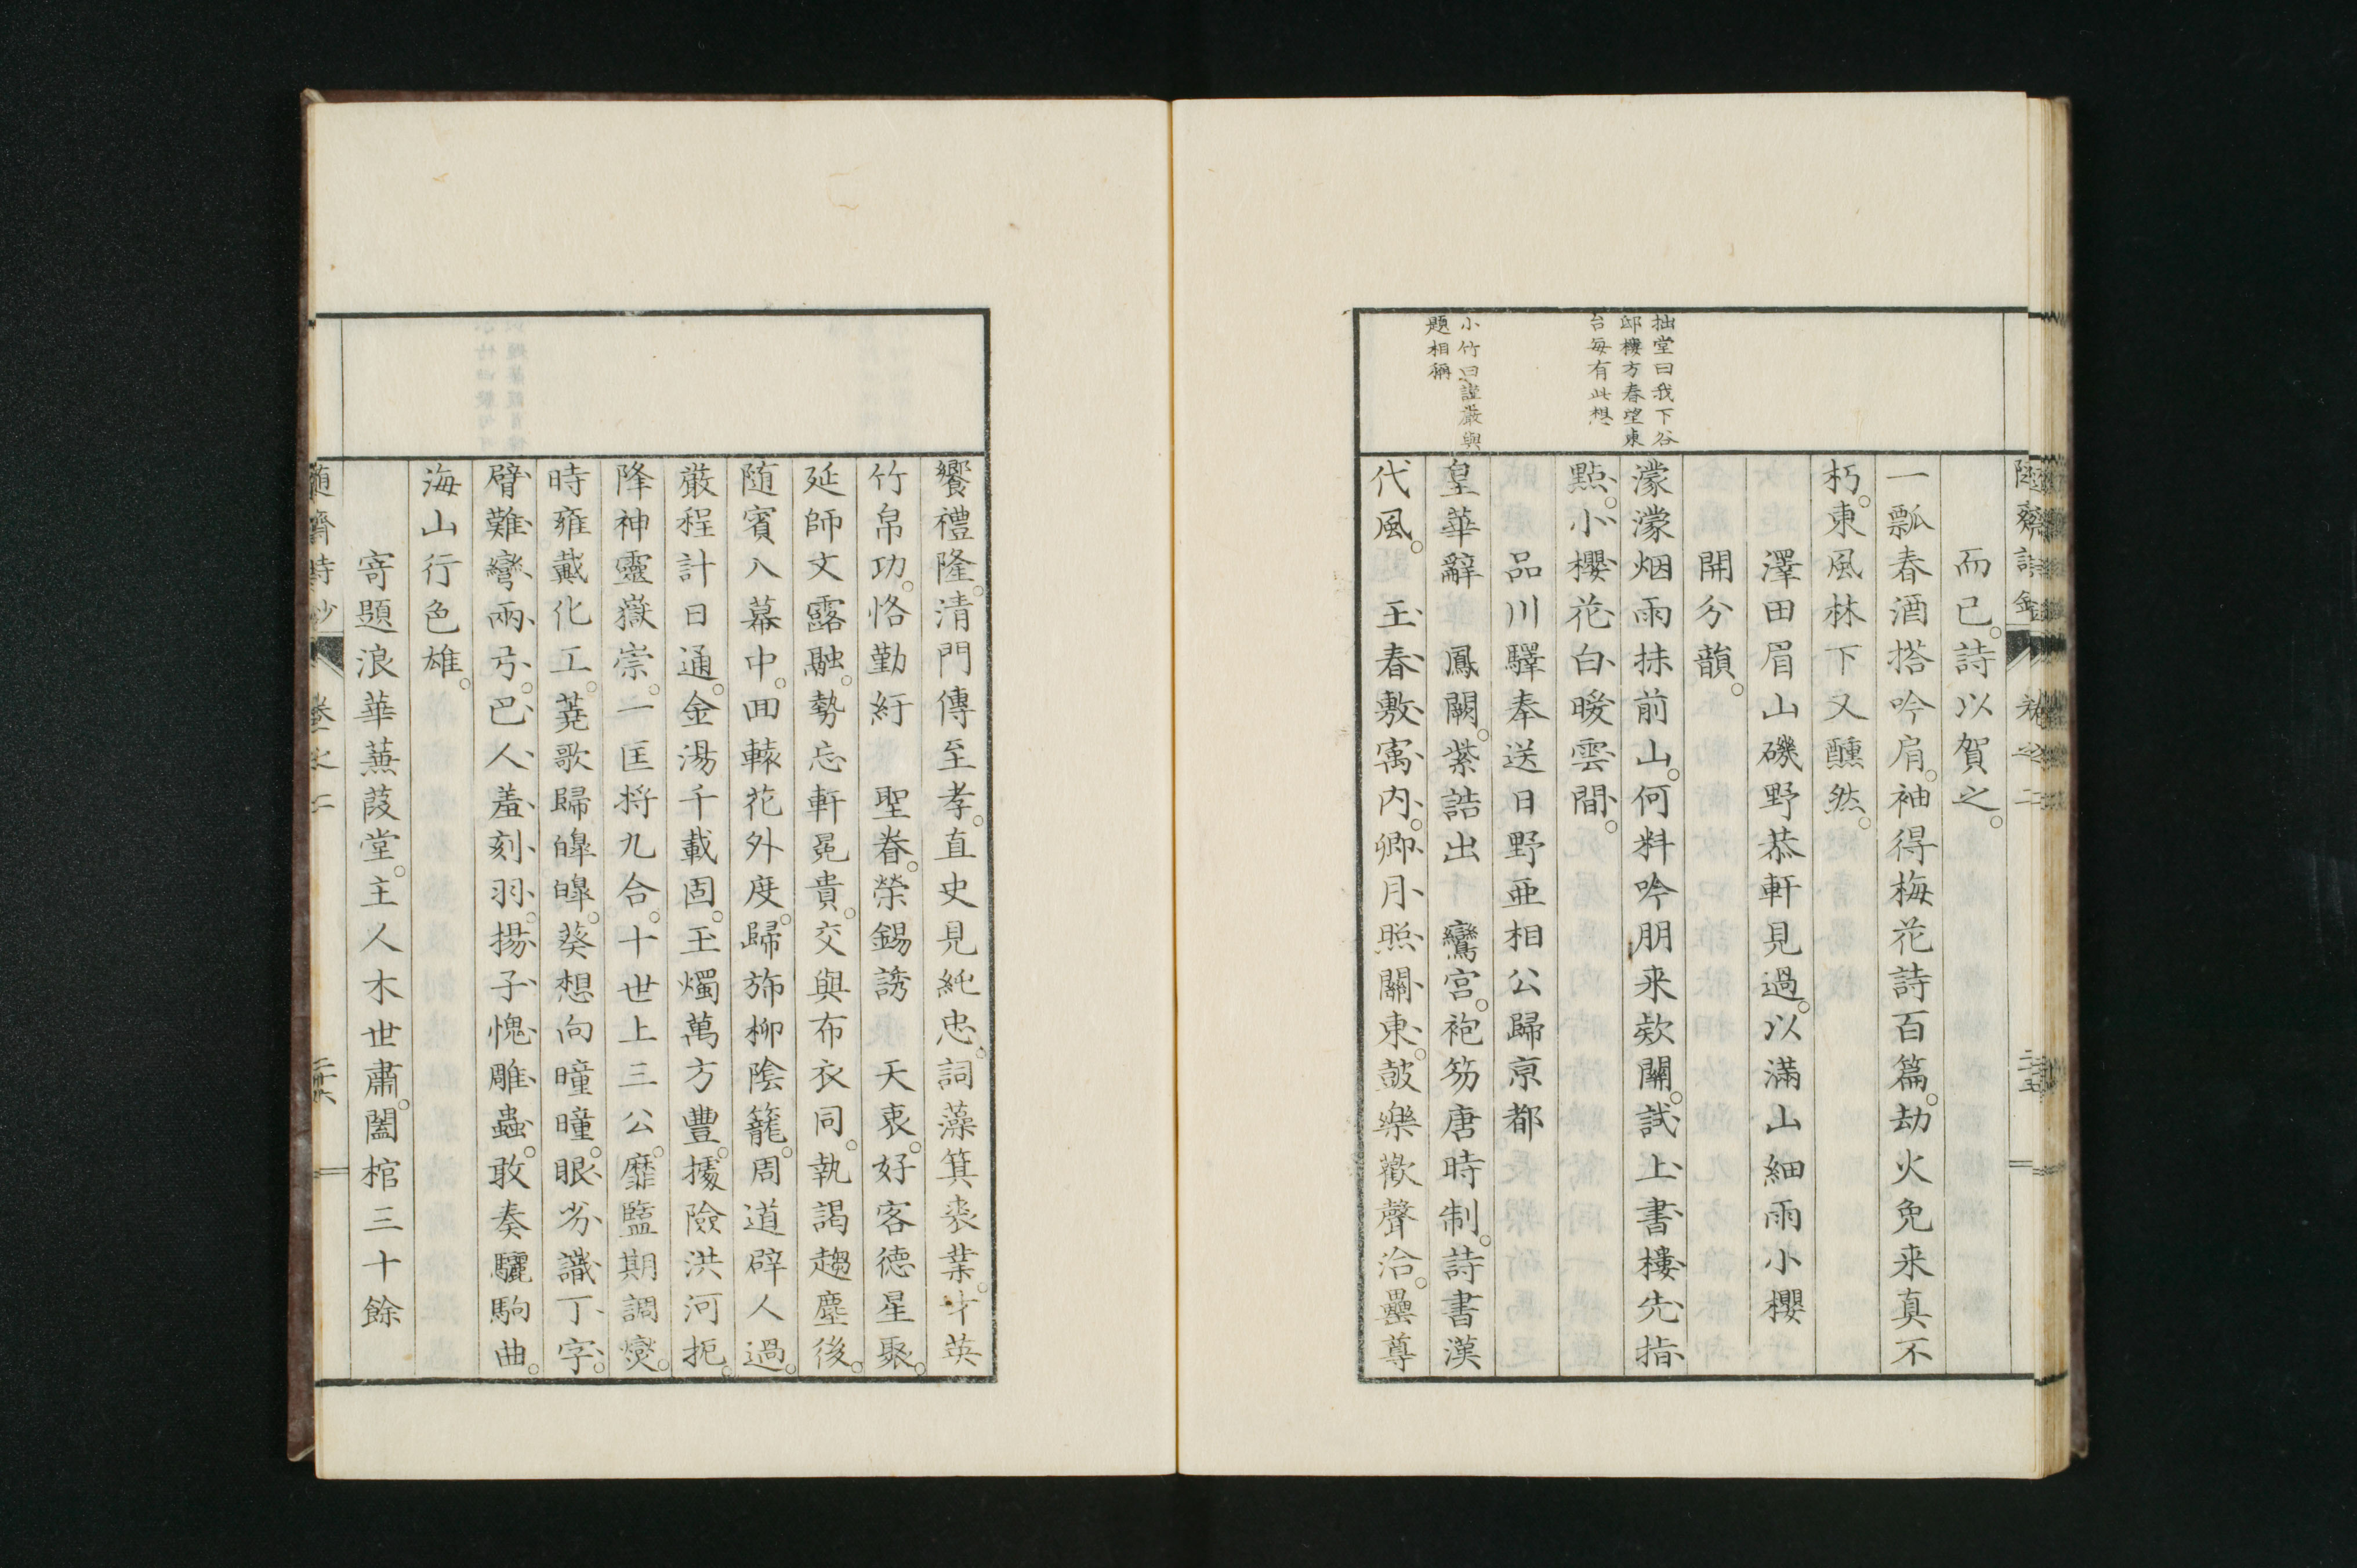 而已。詩以賀之。
一瓢春酒搭吟肩。袖得梅花詩百篇。劫火免来真不
朽。東風林下又醺然。
澤田眉山磯野恭軒見過。以滿山細雨小櫻
開分韻。
濛濛烟雨抹前山。何料吟朋来欵關。試上書樓先指
點。小櫻花白暖雲間。
品川驛奉送日野亜相公歸京都
皇華辭 鳳闕。紫誥出 鸞宮。袍笏唐時制。詩書漢
代風。 王春敷寓内。卿月照關東。鼓樂歡聲洽。罍尊
拙堂曰我下谷
邸樓方春望東
台每有此想
小竹曰謹嚴與
題相稱
饗禮隆。清門傳至孝。直史見純忠。詞藻箕裘業。才英
竹帛功。恪勤紆 聖眷。榮錫誘 天衷。好客德星聚。
延師文露融。勢忘軒冕貴。交與布衣同。執謁趨塵後。
随賓入幕中。回轅花外度。歸斾柳陰籠。周道辟人過。
嚴程計日通。金湯千載固。玉燭萬方豐。據險洪河扼。
降神靈嶽崇。一匡将九合。十世上三公。靡盬期調燮。
時雍戴化工。蕘歌歸皥皥。葵想向曈曈。眼劣識丁字。
臂難彎兩弓。巴人羞刻羽。揚子愧雕蟲。敢奏驪駒曲。
海山行色雄。
寄題浪華蒹葭堂。主人木世肅。闔棺三十餘
随齋詩鈔 卷之二 二十六